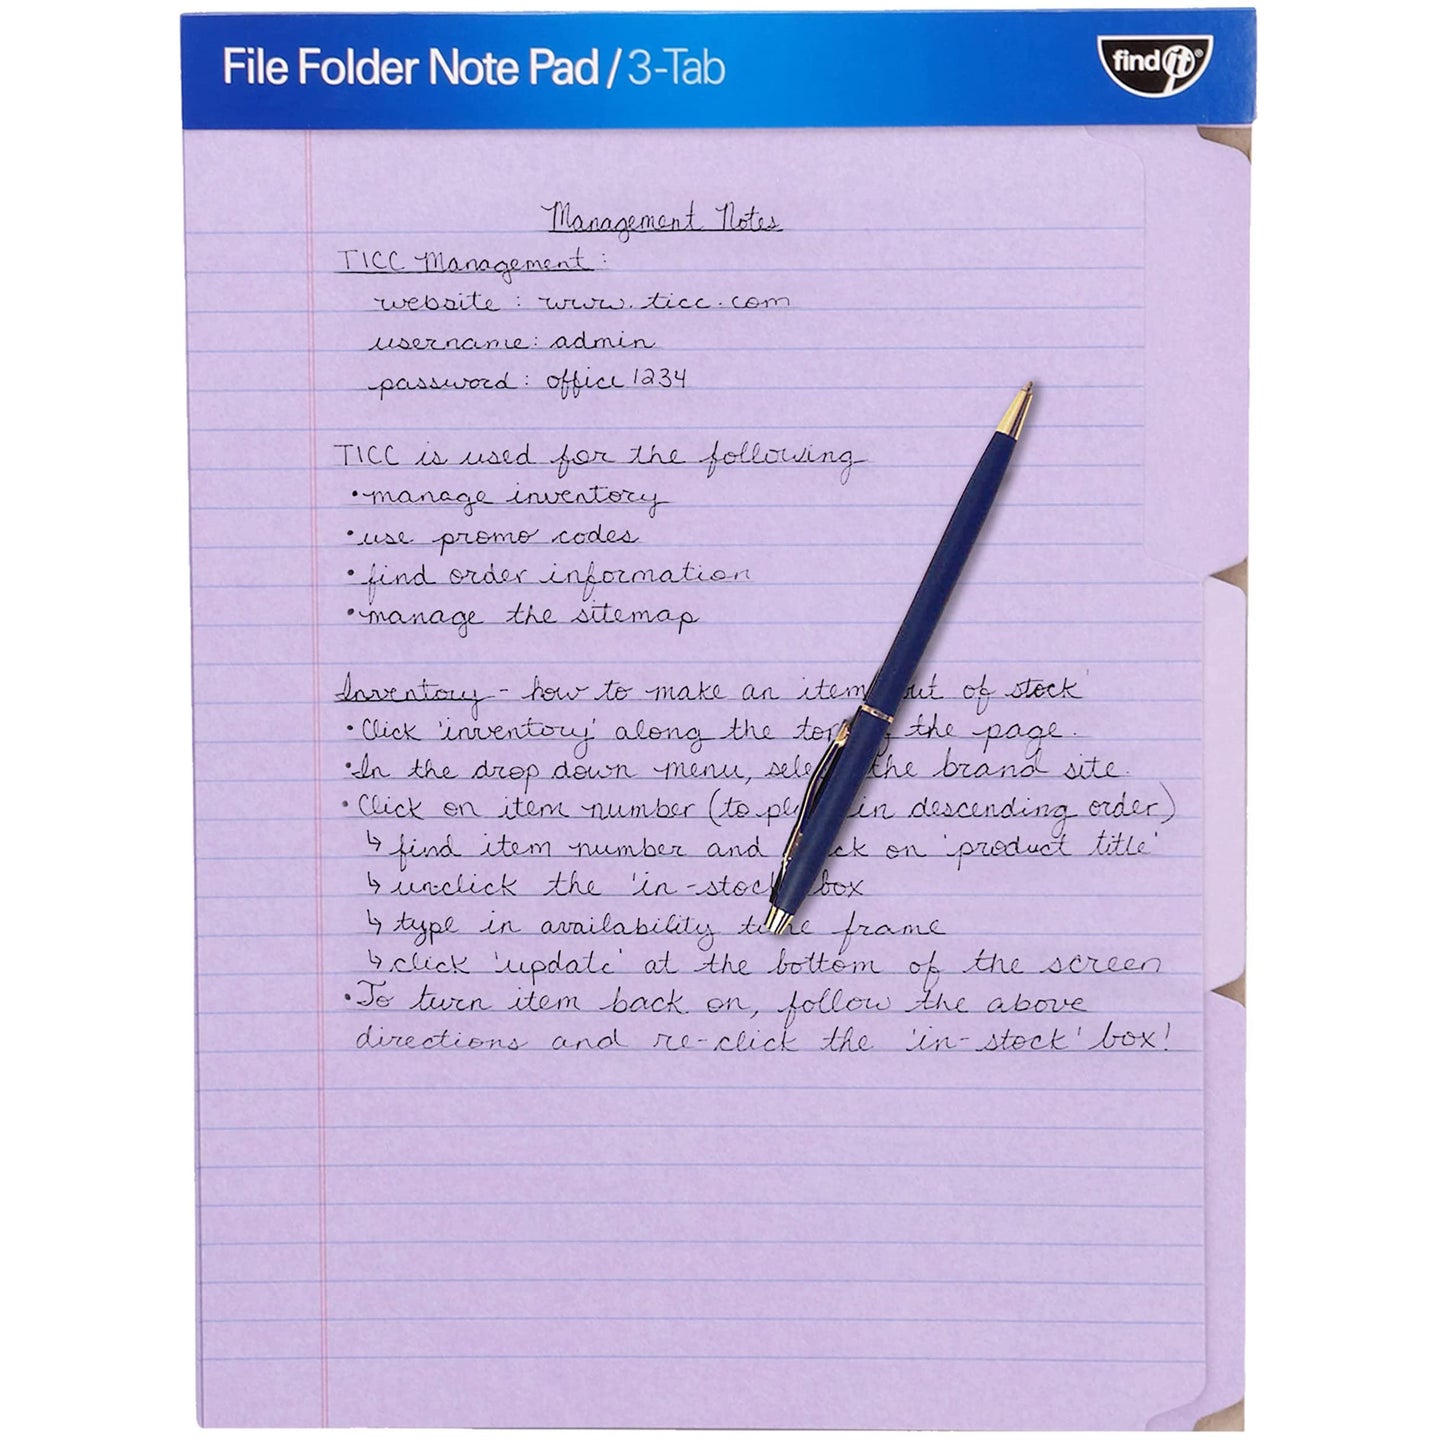 File Folder Note Pad / 3-Tab
find it®
Management Notes
TICC Management:
website: www.ticc.com
username: admin
password: office1234
TICC is used for the following
• manage inventory
• use promo codes
• find order information
• manage the sitemap
Inventory - how to make an item out of stock
• Click 'inventory' along the top of the page.
• In the drop down menu, select the brand site.
• Click on item number (to place in descending order)
↳ find item number and click on 'product title'
↳ unclick the 'in-stock' box
↳ type in availability time frame
↳ click 'update' at the bottom of the screen
• To turn item back on, follow the above
directions and re-click the 'in-stock' box!